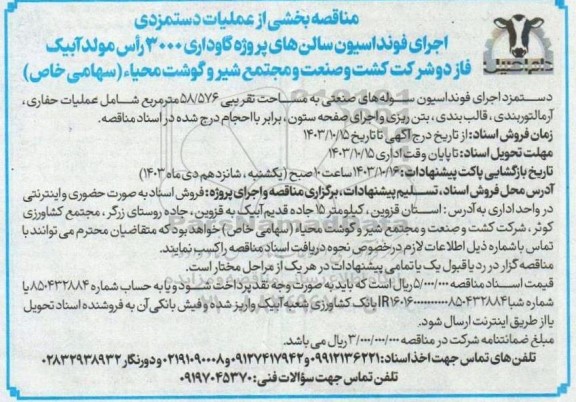 مناقصه بخشی از عملیات دستمزدی
اجرای فونداسیون سالن های پروژه گاوداری ۳۰۰۰ رأس مولد آبیک
فاز دو شرکت کشت و صنعت و مجتمع شیر و گوشت محیاء (سهامی خاص)
دستمزد اجرای فونداسیون سوله های صنعتی به مساحت تقریبی ۵۸/۵۷۶ مترمربع شامل عملیات حفاری،
آرماتوربندی، قالب بندی، بتن ریزی و اجرای صفحه ستون، برابر با احجام درج شده در اسناد مناقصه.
زمان فروش اسناد: از تاریخ درج آگهی تا تاریخ ۱۴۰۳/۱۰/۱۵
مهلت تحویل اسناد: تا پایان وقت اداری ۱۴۰۳/۱۰/۱۵
تاریخ بازگشایی پاکت پیشنهادات: ۱۴۰۳/۱۰/۱۶ ساعت ۱۰ صبح (یکشنبه، شانزدهم دی ماه ۱۴۰۳)
آدرس محل فروش اسناد، تسلیم پیشنهادات، برگزاری مناقصه و اجرای پروژه: فروش اسناد به صورت حضوری و اینترنتی
در واحد اداری به آدرس: استان قزوین، کیلومتر ۱۵ جاده قدیم آبیک به قزوین، جاده روستای زرگر، مجتمع کشاورزی
کوثر، شرکت کشت و صنعت و مجتمع شیر و گوشت محیاء (سهامی خاص) خواهد بود که متقاضیان محترم می توانند با
تماس با شماره ذیل اطلاعات لازم در خصوص نحوه دریافت اسناد مناقصه را کسب نمایند.
مناقصه گزار در رد یا قبول یک یا تمامی پیشنهادات در هر یک از مراحل مختار است.
قیمت اسناد مناقصه ۵/۰۰۰/۰۰۰ ریال است که باید به صورت وجه نقد پرداخت شود و یا به حساب شماره ۸۵۰۴۳۲۸۸۴ یا
بانک کشاورزی شعبه آبیک واریز شده و فیش بانکی آن به فروشنده اسناد تحویل
یا از طریق اینترنت ارسال شود.
مبلغ ضمانتنامه شرکت در مناقصه ۳/۰۰۰/۰۰۰/۰۰۰ ریال می باشد.
تلفن های تماس جهت اخذ اسناد: ۰۹۹۱۲۱۳۶۲۲۱ و ۰۹۱۲۷۴۱۷۹۴۲ و ۰۲۱۹۱۰۹۰۰۰۸ و دورنگار ۰۲۸۳۲۹۳۸۹۳۲
تلفن تماس جهت سؤالات فنی: ۰۹۱۹۷۰۴۵۳۷۰